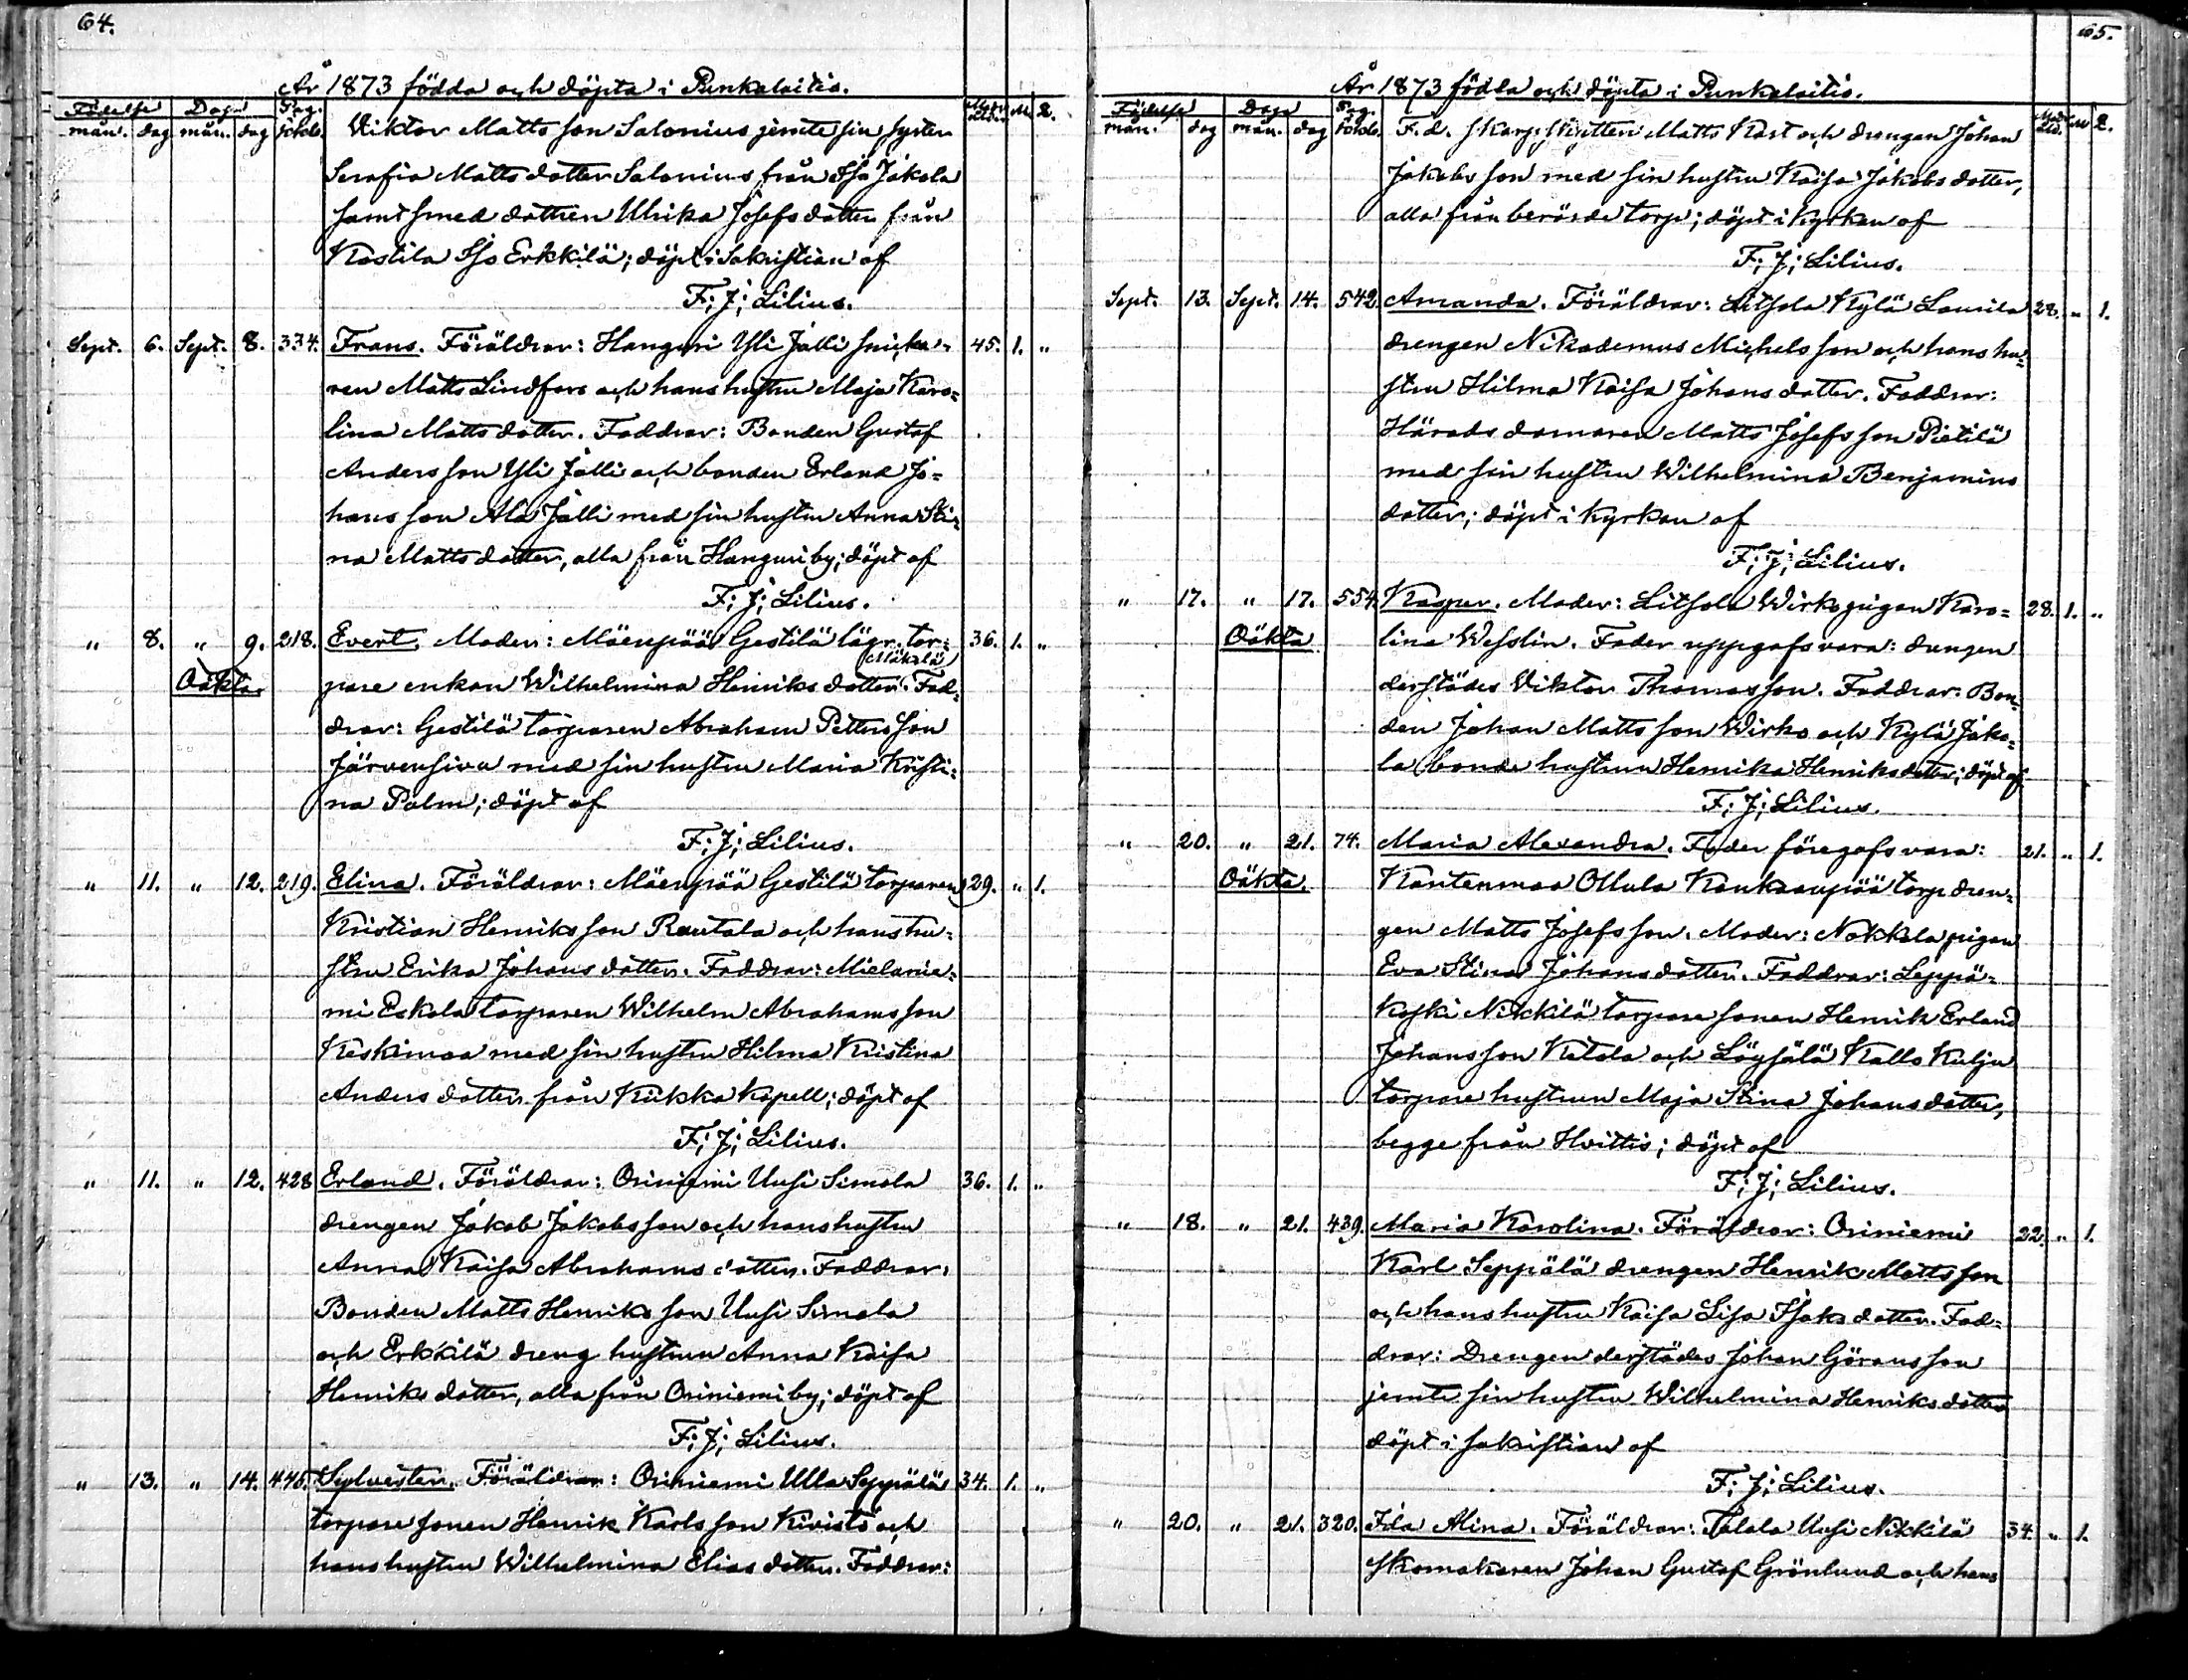 64.
År 1873 födda och döpta i Punkalaitio.
Födelse Dops Pag. M. Q.
mån. dag mån. dag Viktor Matts son Salonius jemte sin syster
Serafia Matts dotter Salonius från Iso Jakola
samt smed dottren Ulrika Josefs dotter från
Kostila Iso Erkkilä; döpt i Sakristian af
F; J; Lilius.
Sept. 6. Sept. 8. 334. Frans. Föräldrar: Hanguri Yli Jalli snicka= 45. 1. "
ren Matts Lindfors och hans hustru Maja Karo=
lina Matts dotter. Faddrar: Bonden Gustaf
Anders son Yli Jalli och bonden Erland Jo=
hans son Ala Jalli med sin hustru Anna Sti=
na Matts dotter, alla från Hanguri by; döpt af
F; J; Lilius.
" 8. " 9. 218. Evert. Moder: Mäenpää Gestilä tor= 36. 1. "
Mäkelä
Oäkta. pare enkan Wilhelmina Henriks dotter. Fad=
drar: Gestilä torparen Abraham Petters son
Järvensivu med sin hustru Maria Kristi=
na Palm; döpt af
F; J; Lilius.
" 11. " 12. 219. Elina. Föräldrar: Mäenpää Gestilä torparen 29. " 1.
Kristian Henriks son Rautala och hans hu=
stru Erika Johans dotter. Faddrar: Mielanie=
mi Eskola torparen Wilhelm Abrahams son
Keskimaa med sin hustru Hilma Kristina
Anders dotter från Kiikka Kapell; döpt af
F; J; Lilius.
" 11. " 12. 428 Erland. Föräldrar: Oriniemi Uusi Simola 36. 1. "
drengen Jakob Jakobs son och hans hustru
Anna Kaisa Abrahams dotter. Faddrar:
Bonden Matts Henriks son Uusi Simola
och Erkkilä dreng hustrun Anna Kaisa
Henriks dotter, alla från Oriniemi by; döpt af
F; J; Lilius.
" 13. " 14. 445. Sylvester. Föräldrar: Oriniemi Ulla Seppälä 34. 1. "
torpare sonen Henrik Karls son Kivistö och
hans hustru Wilhelmina Elias dotter. Faddrar:
65.
År 1873 födda och döpta i Punkalaitio.
Födelse Dops Pag. M Q.
mån. dag mån. dag F. d. Skarpskytten Matts Kast och drengen Johan
Jakobs son med sin hustru Kaisa Jakobs dotter,
alla från berörde torp; döpt i Kyrkan af
F; J; Lilius.
Sept. 13. Sept. 14. 542. Amanda. Föräldrar: Litsola Kylä Laurila 28. " 1.
drengen Nikodemus Michels son och hans hu=
stru Hilma Kaisa Johans dotter. Faddrar:
Härads domaren Matts Josefs son Pietilä
med sin hustru Wilhelmina Benjamins
dotter; döpt i Kyrkan af
F; J; Lilius.
" 17. " 17. 554. Kasper. Moder: Litsola Wirko pigan Karo= 28. 1. "
Oäkta lina Wesslin. Fader uppgafs vara: drengen
derstädes Viktor Thomasson. Faddrar: Bon=
den Johan Matts son Wirko och Kylä Jako=
la bonde hustrun Henrika Henriks dotter; döpt af
F; J; Lilius.
" 20. " 21. 74. Maria Alexandra. Fader föregafs vara: 21. " 1.
Oäkta. Kantenmaa Ollula Kankaanpää torp dren=
gen Matts Josefs son. Moder: Nokkala pigan
Eva Stina Johans dotter. Faddrar: Leppä=
koski Nikkilä torpare sonen Henrik Erland
Johans son Ketola och Löysälä Kallo Kulju
torpare hustrun Maja Stina Johans dotter,
begge från Hvittis; döpt af
F; J; Lilius.
" 18. " 21. 439. Maria Karolina. Föräldrar: Oriniemi 22. " 1.
Karl Seppälä drengen Henrik Matts son
och hans hustru Kaisa Lisa Isaks dotter. Fad=
drar: Drengen derstädes Johan Görans son
jemte sin hustru Wilhelmina Henriks dotter
döpt i sakristian af
F; J; Lilius.
" 20. " 21. 320. Ida Alina. Föräldrar: Talala Uusi Nikkilä 34. " 1.
skomakaren Johan Gustaf Grönlund och hans